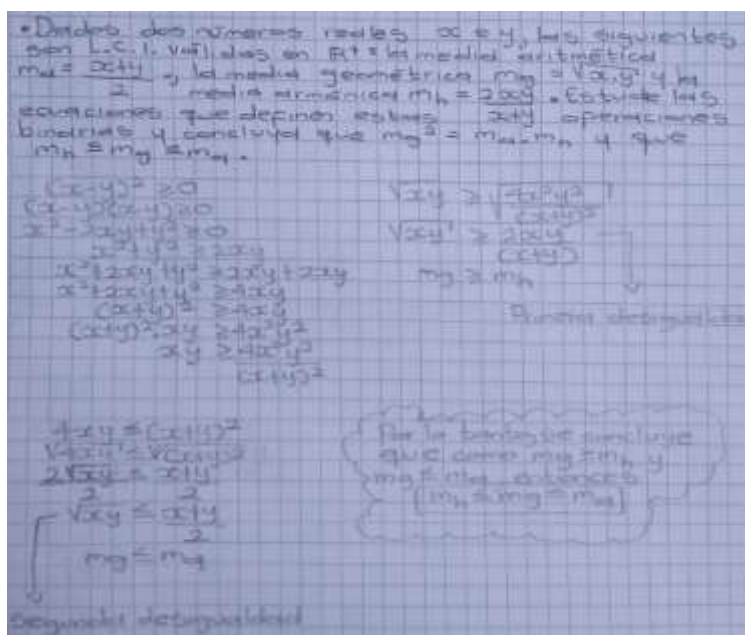 • Dados dos números reales x e y, las siguientes
son L.C.I. válidas en R⁺: la media aritmética
mₐ = x+y/2, la media geométrica m_g = √x.y y la
media armónica mₕ = 2xy/x+y. Estudie las
ecuaciones que definen estas operaciones
binarias y concluya que m_g² = mₐ.mₕ y que
mₕ ≤ m_g ≤ mₐ.
(x-y)² ≥ 0
(x-y)(x-y) ≥ 0
x² - 2xy + y² ≥ 0
x² + y² ≥ 2xy
x² + 2xy + y² ≥ 2xy + 2xy
x² + 2xy + y² ≥ 4xy
(x+y)² ≥ 4xy
(x+y)².xy ≥ 4x²y²
xy ≥ 4x²y²/(x+y)²
√xy ≥ √4x²y²/(x+y)²
√xy ≥ 2xy/(x+y)
m_g ≥ mₕ
Primera desigualdad
4xy ≤ (x+y)²
√4xy ≤ √(x+y)²
2√xy/2 ≤ x+y/2
√xy ≤ x+y/2
m_g ≤ mₐ
Segunda desigualdad
Por lo tanto se concluye
que como m_g ≥ mₕ y
m_g ≤ mₐ entonces
[mₕ ≤ m_g ≤ mₐ]